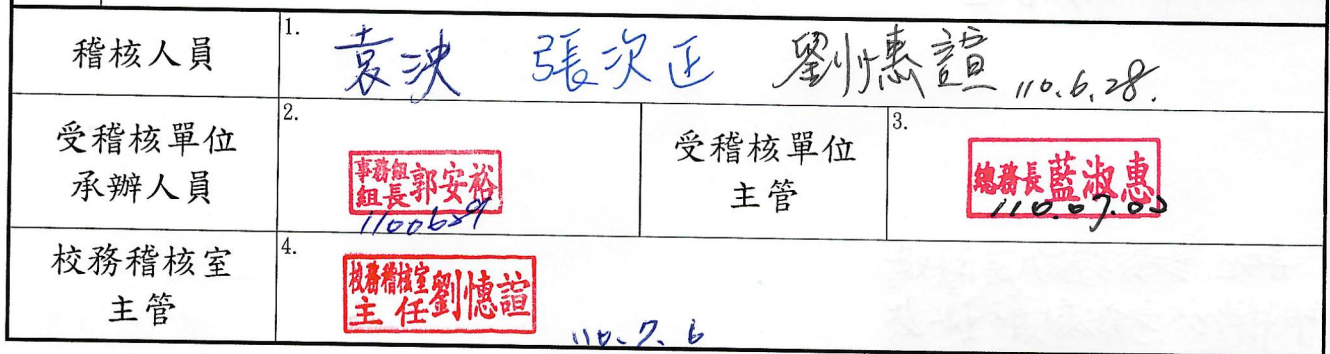 稽核人員
1.
袁泱 張次正 劉憓諠 110.6.28.
受稽核單位
承辦人員
2.
事務組
組長 郭安裕
1100629
受稽核單位
主管
3.
總務長 藍淑惠
110.07.02
校務稽核室
主管
4.
校務稽核室
主任 劉憓諠
110.7.6